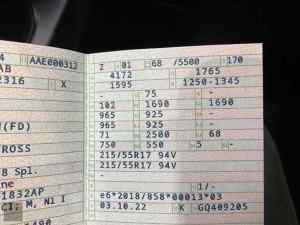 4 AAE000312 2 -01 □68 /5500 -170
AB 4172 1765
2316 X 1595 1250-1345
- 75 -
102 1690 1690
(FD) 965 925
965 925 -
ROSS 71 2500 68
750 550 5 -
8 Spl. 215/55R17 94V
ine 215/55R17 94V
1832AP
CI; M, N1 I 1/-
e6*2018/858*00013*03
03.10.22 K GQ409205